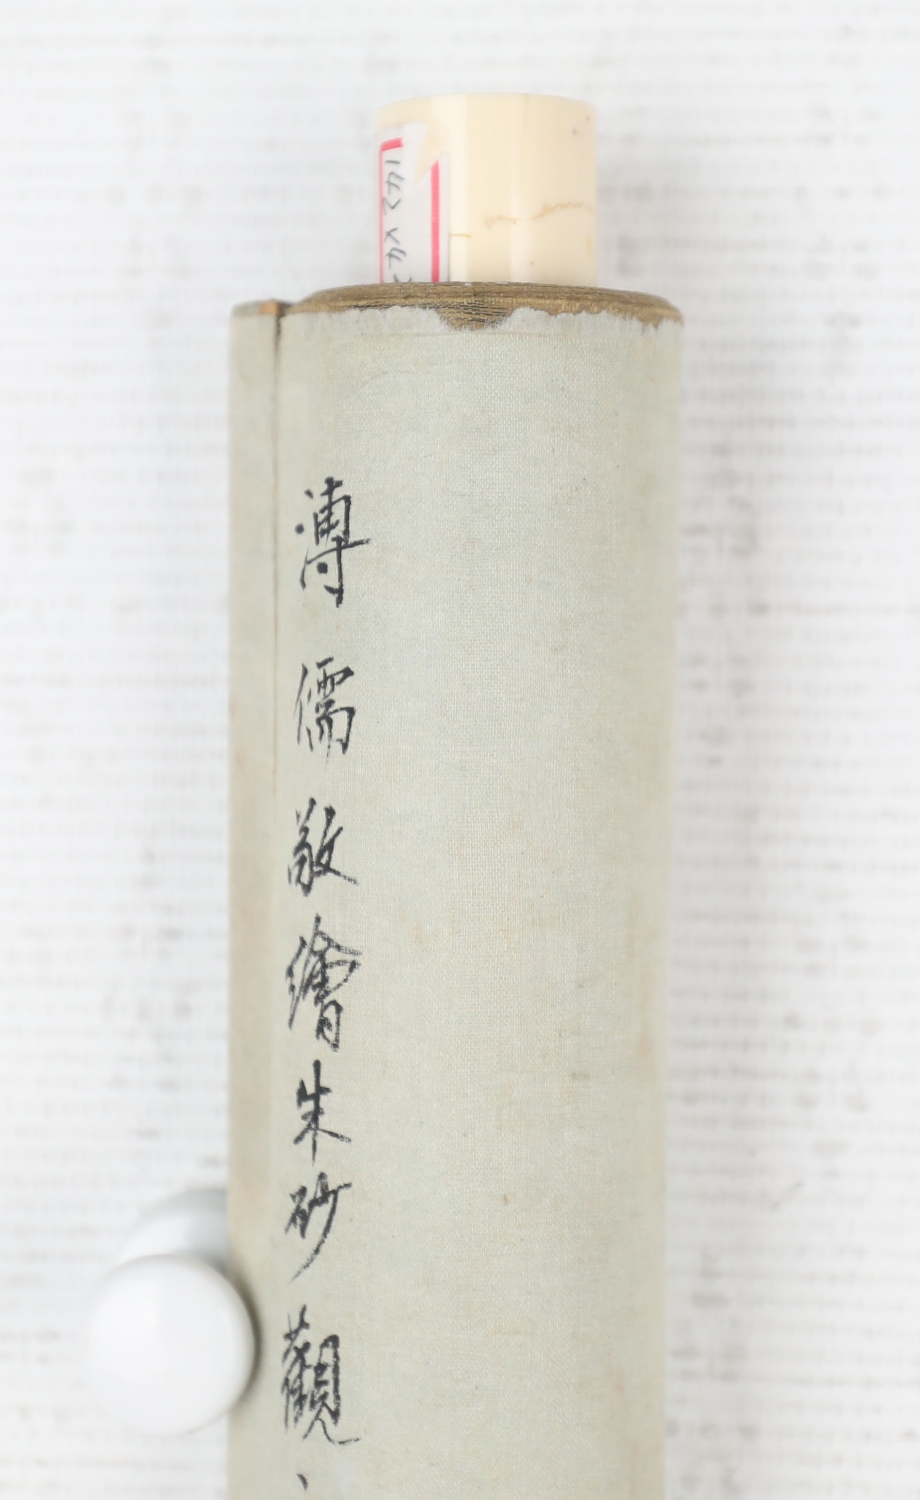 溥儒敬繪朱砂觀